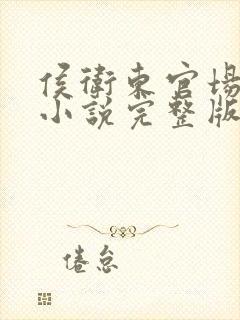 侯衛東官場
小說完整版
倦怠